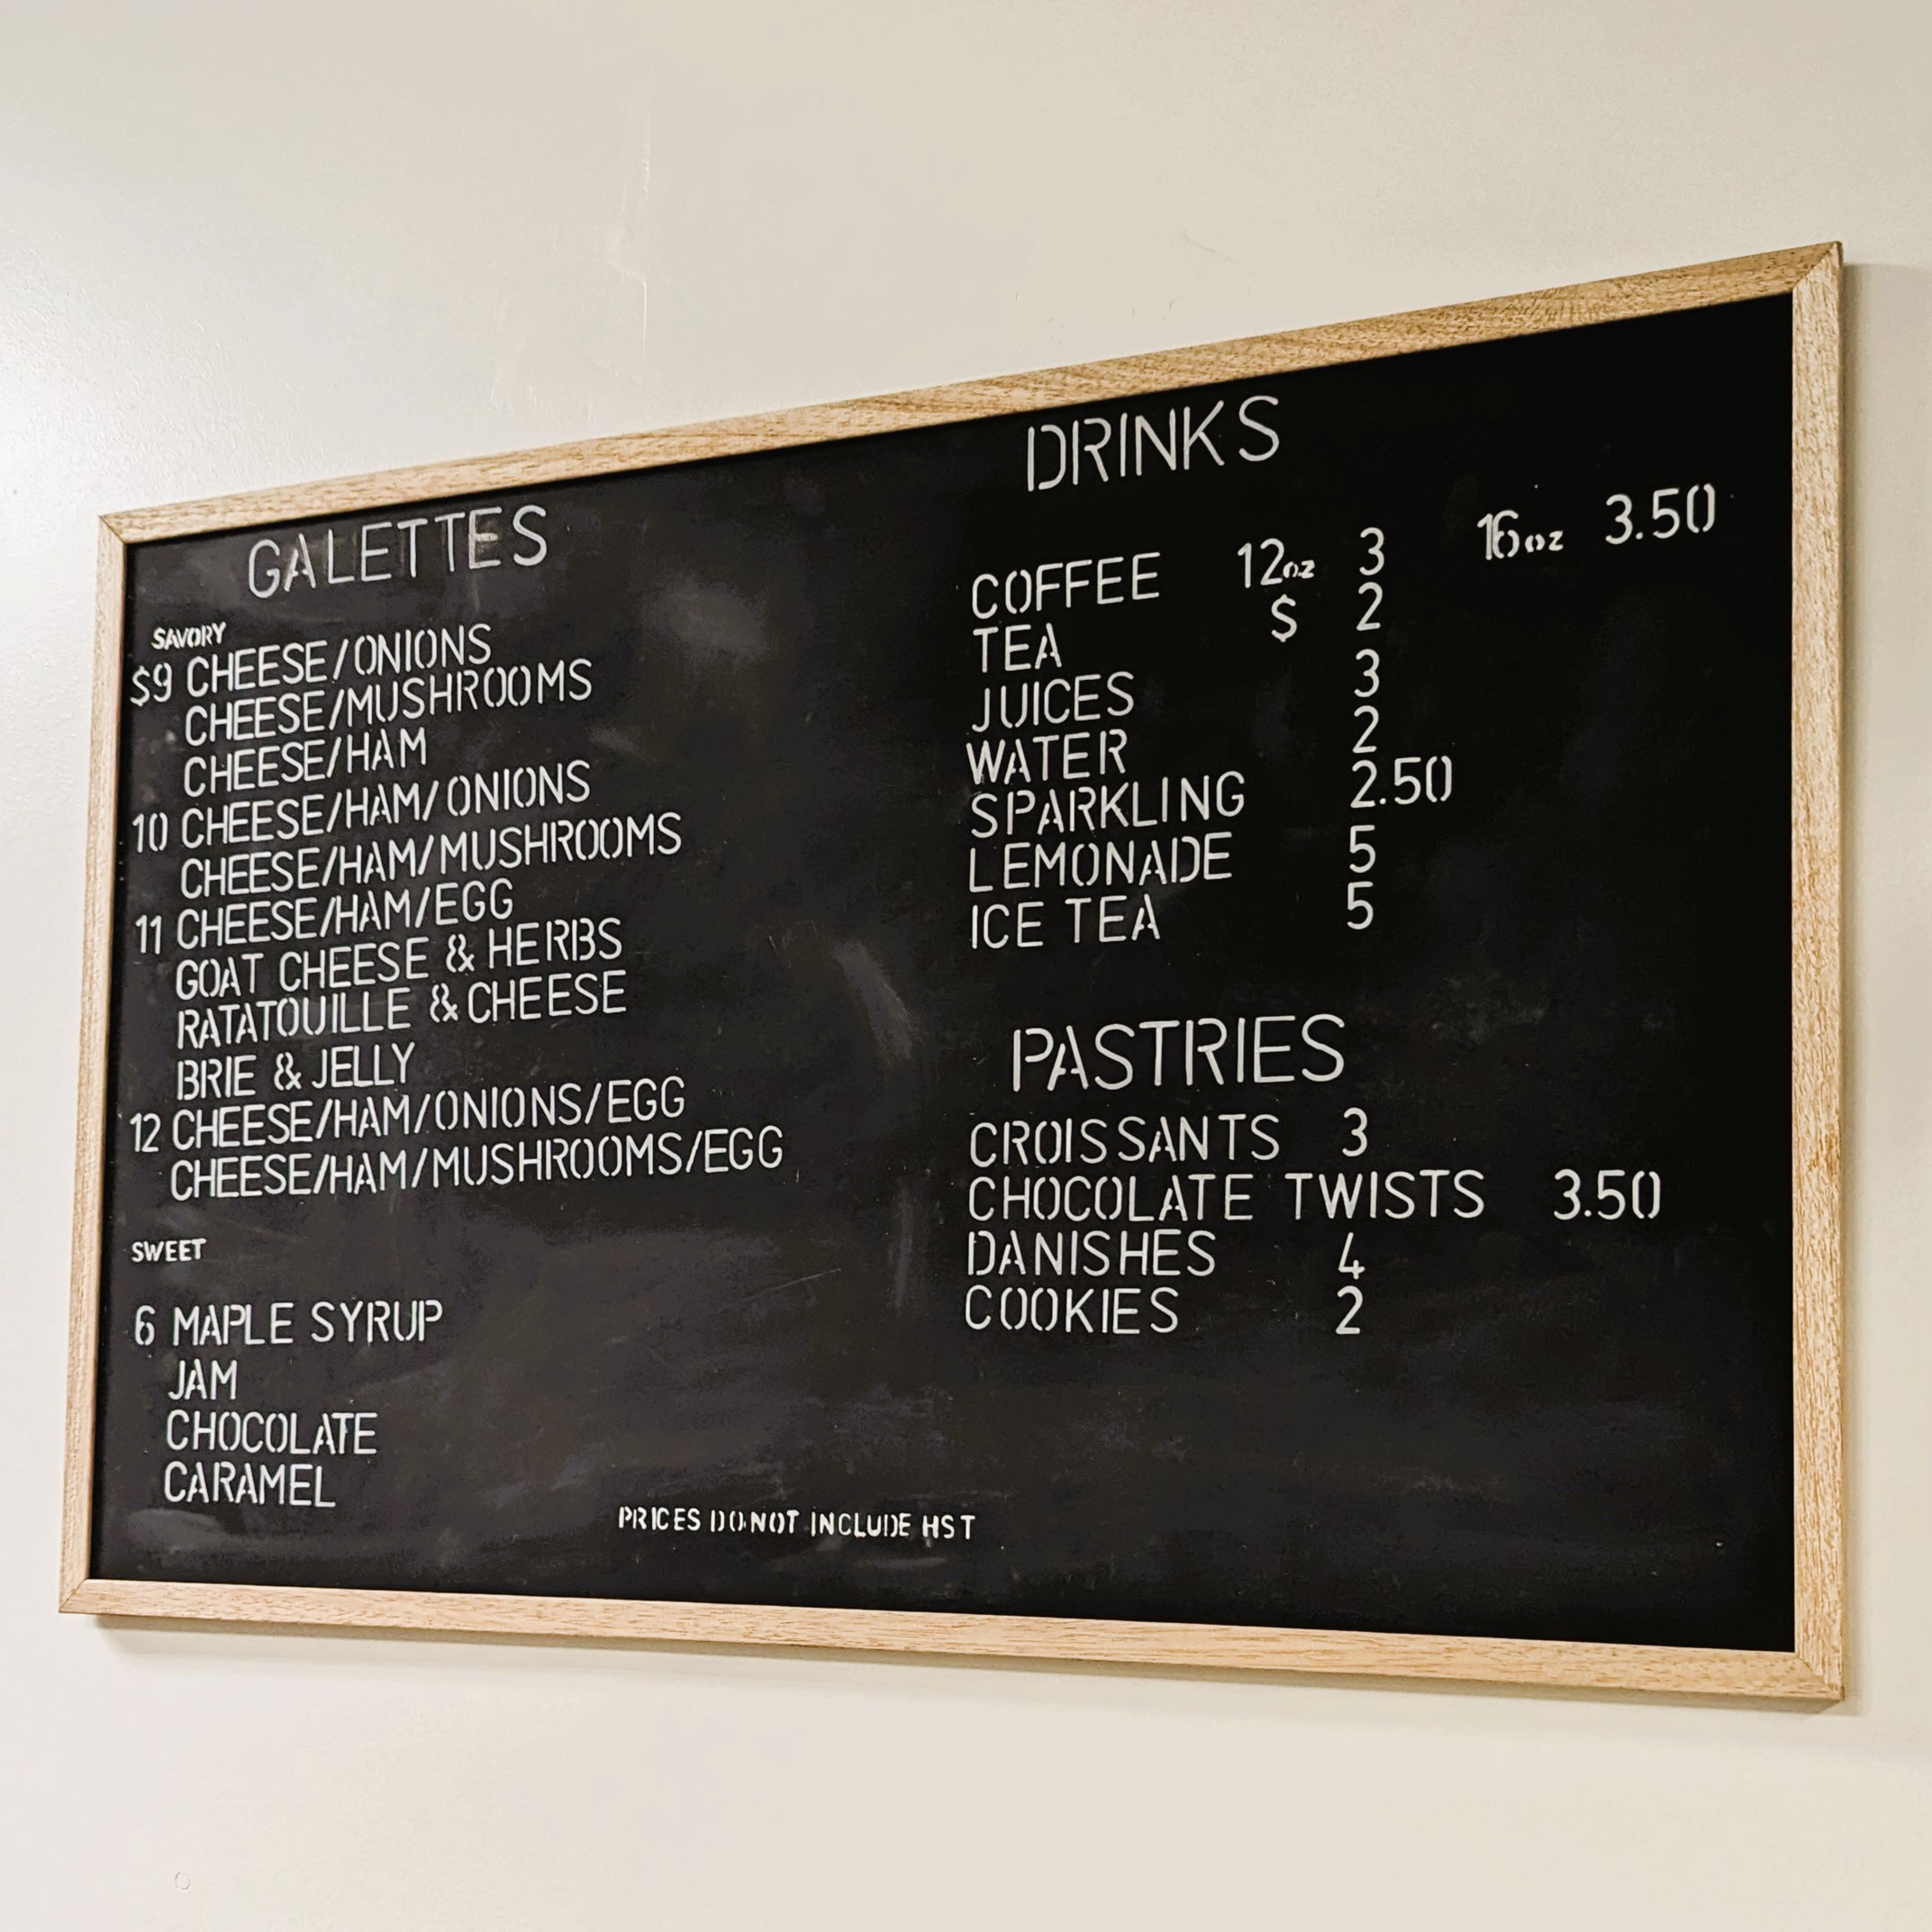 GALETTES
SAVORY
$9 CHEESE/ONIONS
CHEESE/MUSHROOMS
CHEESE/HAM
10 CHEESE/HAM/ONIONS
CHEESE/HAM/MUSHROOMS
11 CHEESE/HAM/EGG
GOAT CHEESE & HERBS
RATATOUILLE & CHEESE
BRIE & JELLY
12 CHEESE/HAM/ONIONS/EGG
CHEESE/HAM/MUSHROOMS/EGG
SWEET
6 MAPLE SYRUP
JAM
CHOCOLATE
CARAMEL
DRINKS
COFFEE 12oz 3 16oz 3.50
TEA $ 2
JUICES 3
WATER 2
SPARKLING 2.50
LEMONADE 5
ICE TEA 5
PASTRIES
CROISSANTS 3
CHOCOLATE TWISTS 3.50
DANISHES 4
COOKIES 2
PRICES DO NOT INCLUDE HST